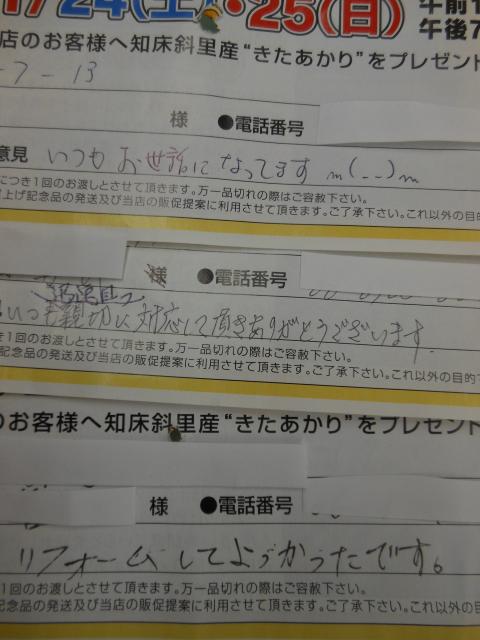 1/24(土)・25(日)
午前1
午後7
店のお客様へ知床斜里産“きたあかり”をプレゼント
-7-13
様 ●電話番号
意見 いつもお世話になってます m(_ _)m
につき1回のお渡しとさせて頂きます。万一品切れの際はご容赦下さい。
上げ記念品の発送及び当店の販促提案に利用させて頂きます。ご了承下さい。これ以外の目的
様 ●電話番号
いつも親切に対応して頂きありがとうございます。
き1回のお渡しとさせて頂きます。万一品切れの際はご容赦下さい。
記念品の発送及び当店の販促提案に利用させて頂きます。ご了承下さい。これ以外の目的で
のお客様へ知床斜里産“きたあかり”をプレゼント
様 ●電話番号
リフォームしてよかったです。
1回のお渡しとさせて頂きます。万一品切れの際はご容赦下さい。
記念品の発送及び当店の販促提案に利用させて頂きます。ご了承下さい。これ以外の目的で